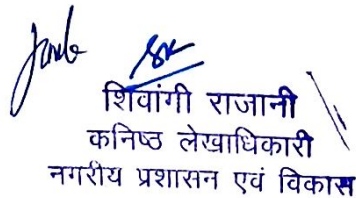 शिवांगी राजानी
कनिष्ठ लेखाधिकारी
नगरीय प्रशासन एवं विकास